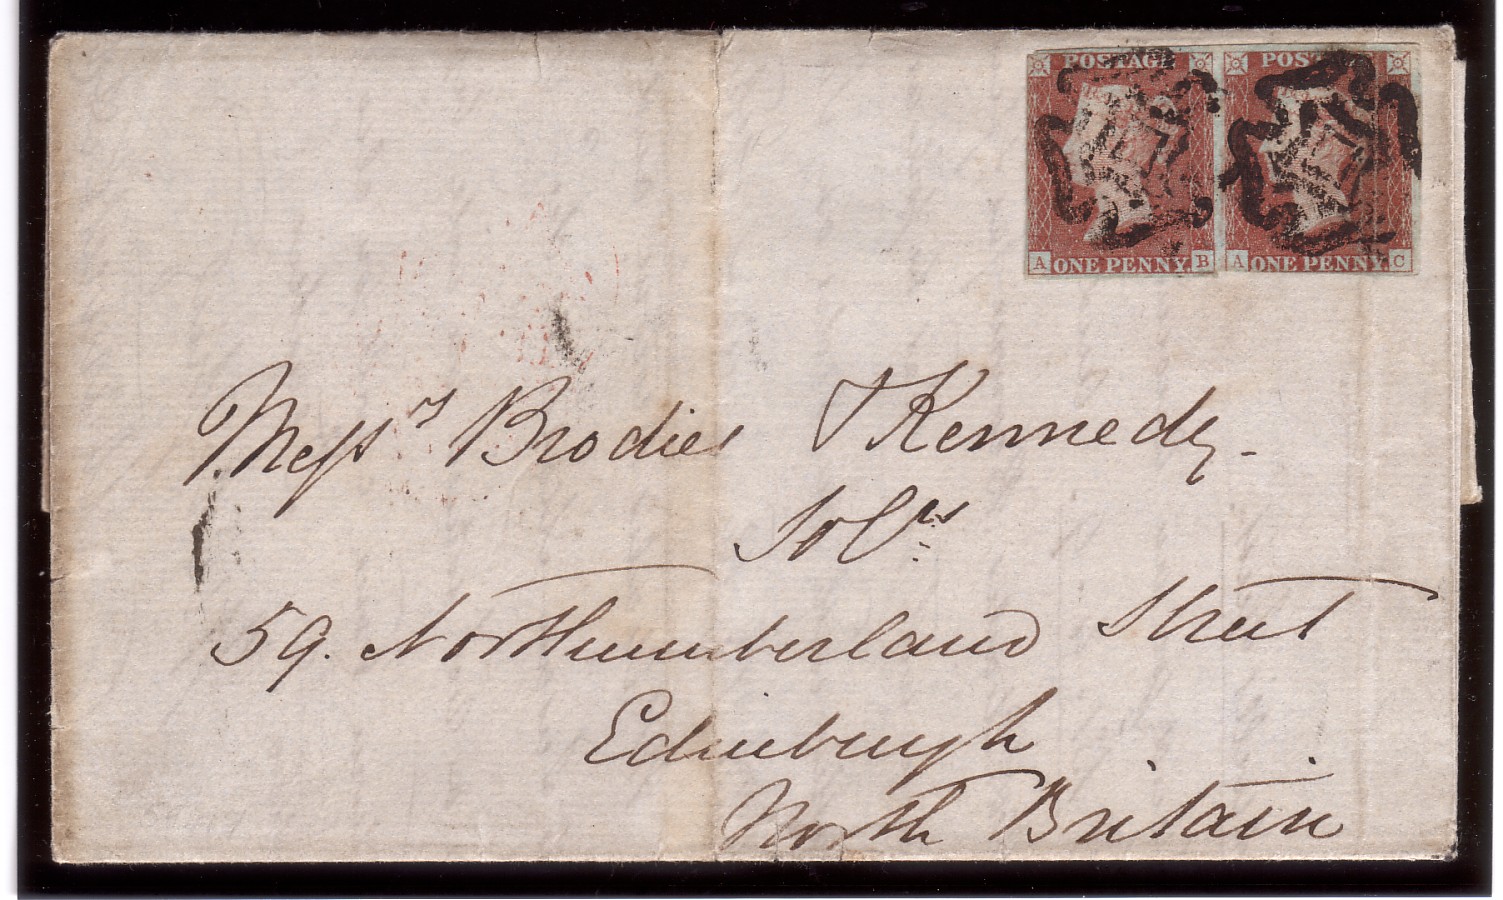 POSTAGE POST
A ONE PENNY. B A ONE PENNY. C
Messrs Brodies & Kennedy.
Solrs
59. Northumberland Street
Edinburgh
North Britain